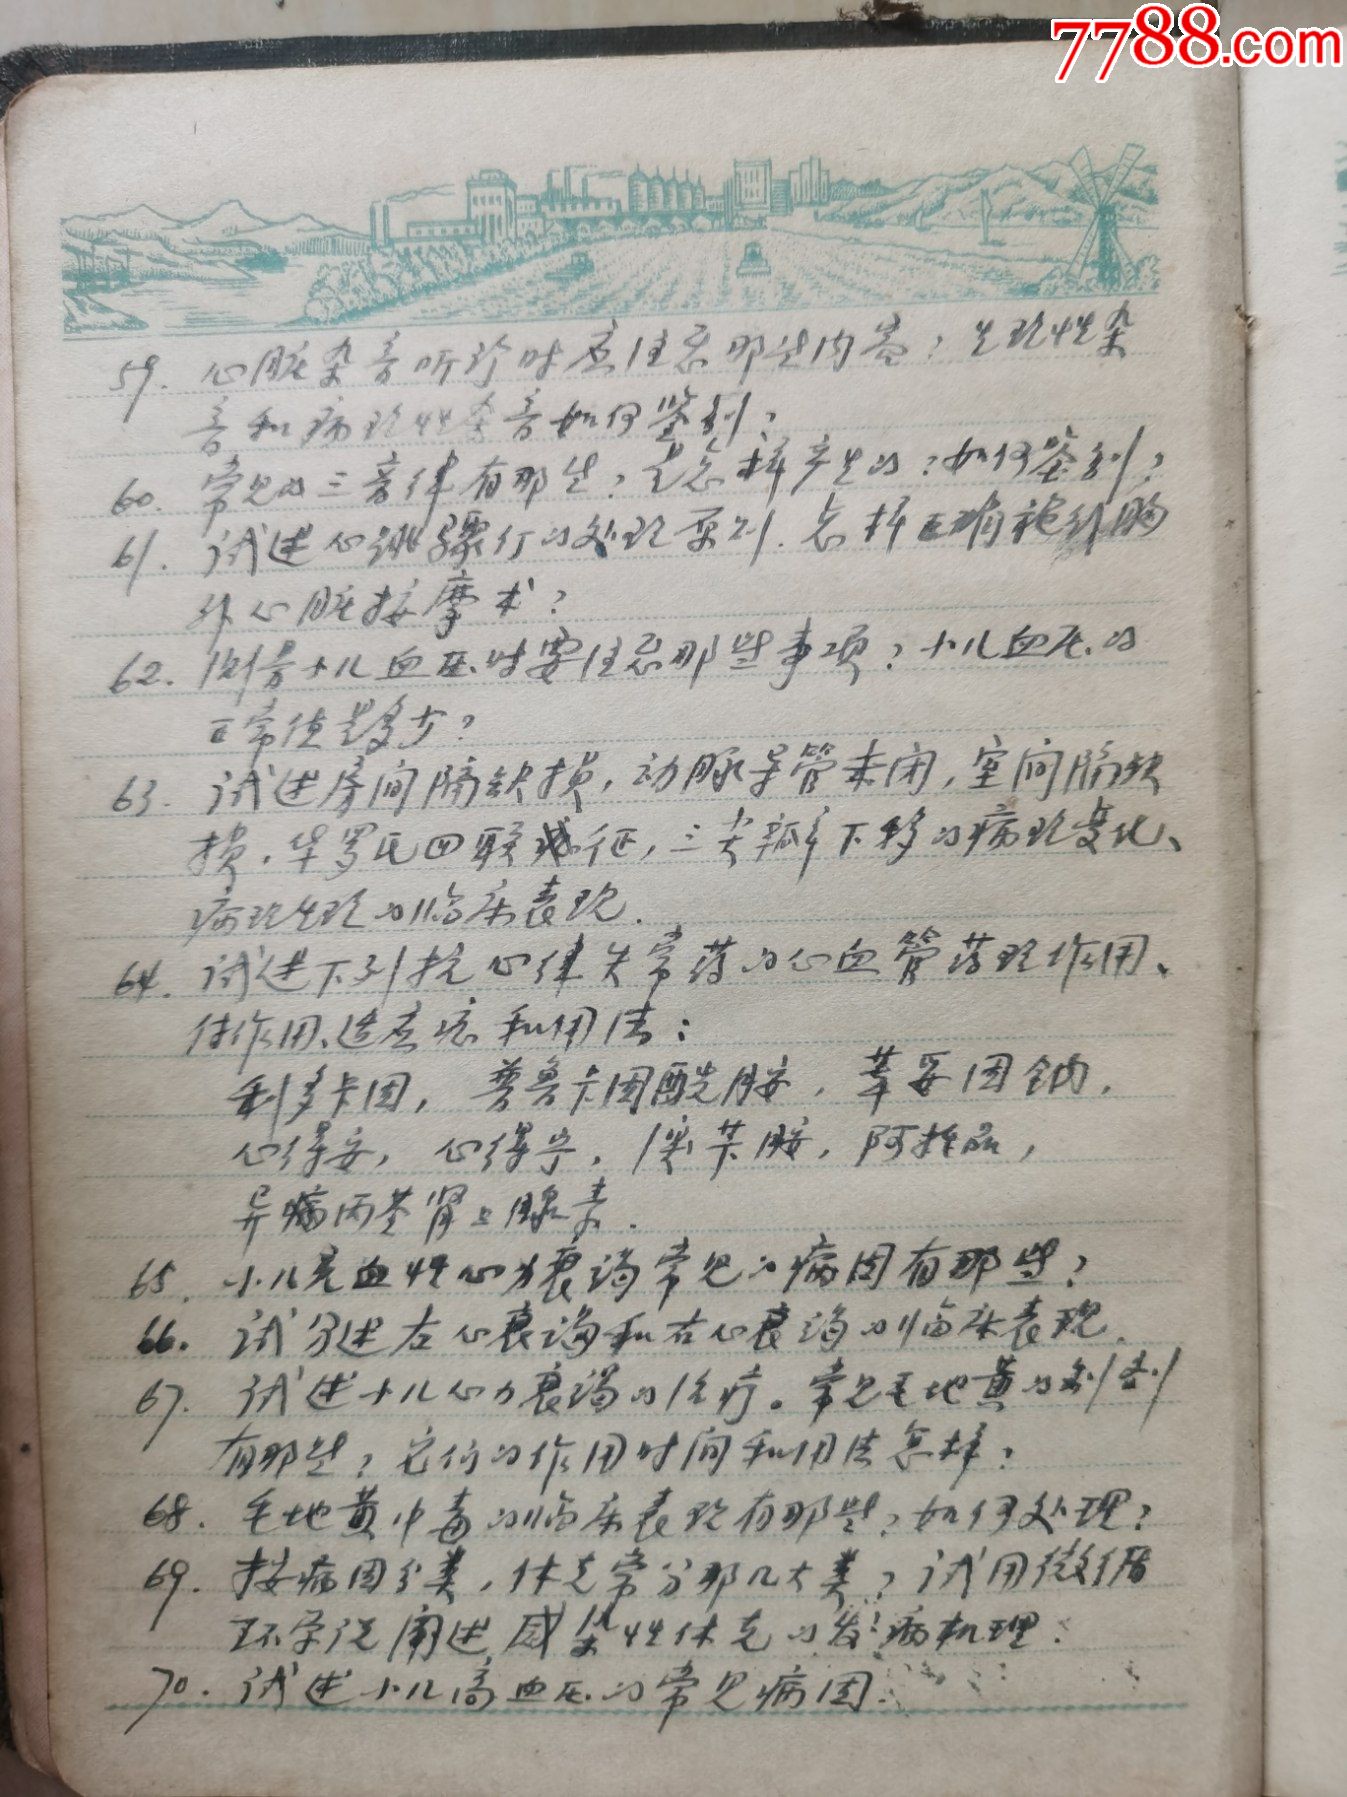 7788.com
59. 心脏杂音听诊时应注意那些内容？生理性杂
音和病理性杂音如何鉴别？
60. 常见的三音律有那些？是怎样产生的？如何鉴别？
61. 试述心跳骤停的处理原则.怎样正确施行胸
外心脏按摩术？
62. 测量小儿血压时要注意那些事项？小儿血压的
正常值是多少？
63. 试述房间隔缺损，动脉导管未闭，室间隔缺
损.法罗氏四联征，三尖瓣下移的病理变化、
病理生理的临床表现.
64. 试述下列抗心律失常药的心血管药理作用、
付作用、适应症和用法：
利多卡因，普鲁卡因酰胺，苯妥因钠，
心得安，心得宁，溴苄胺，阿托品，
异丙基肾上腺素.
65. 小儿充血性心力衰竭常见的病因有那些？
66. 试分述左心衰竭和右心衰竭的临床表现.
67. 试述小儿心力衰竭的治疗。常见毛地黄的制剂
有那些？它们的作用时间和用法怎样？
68. 毛地黄中毒的临床表现有那些？如何处理？
69. 按病因分类，休克常分那几大类？试用微循
环学说阐述感染性休克的发病机理.
70. 试述小儿高血压的常见病因.